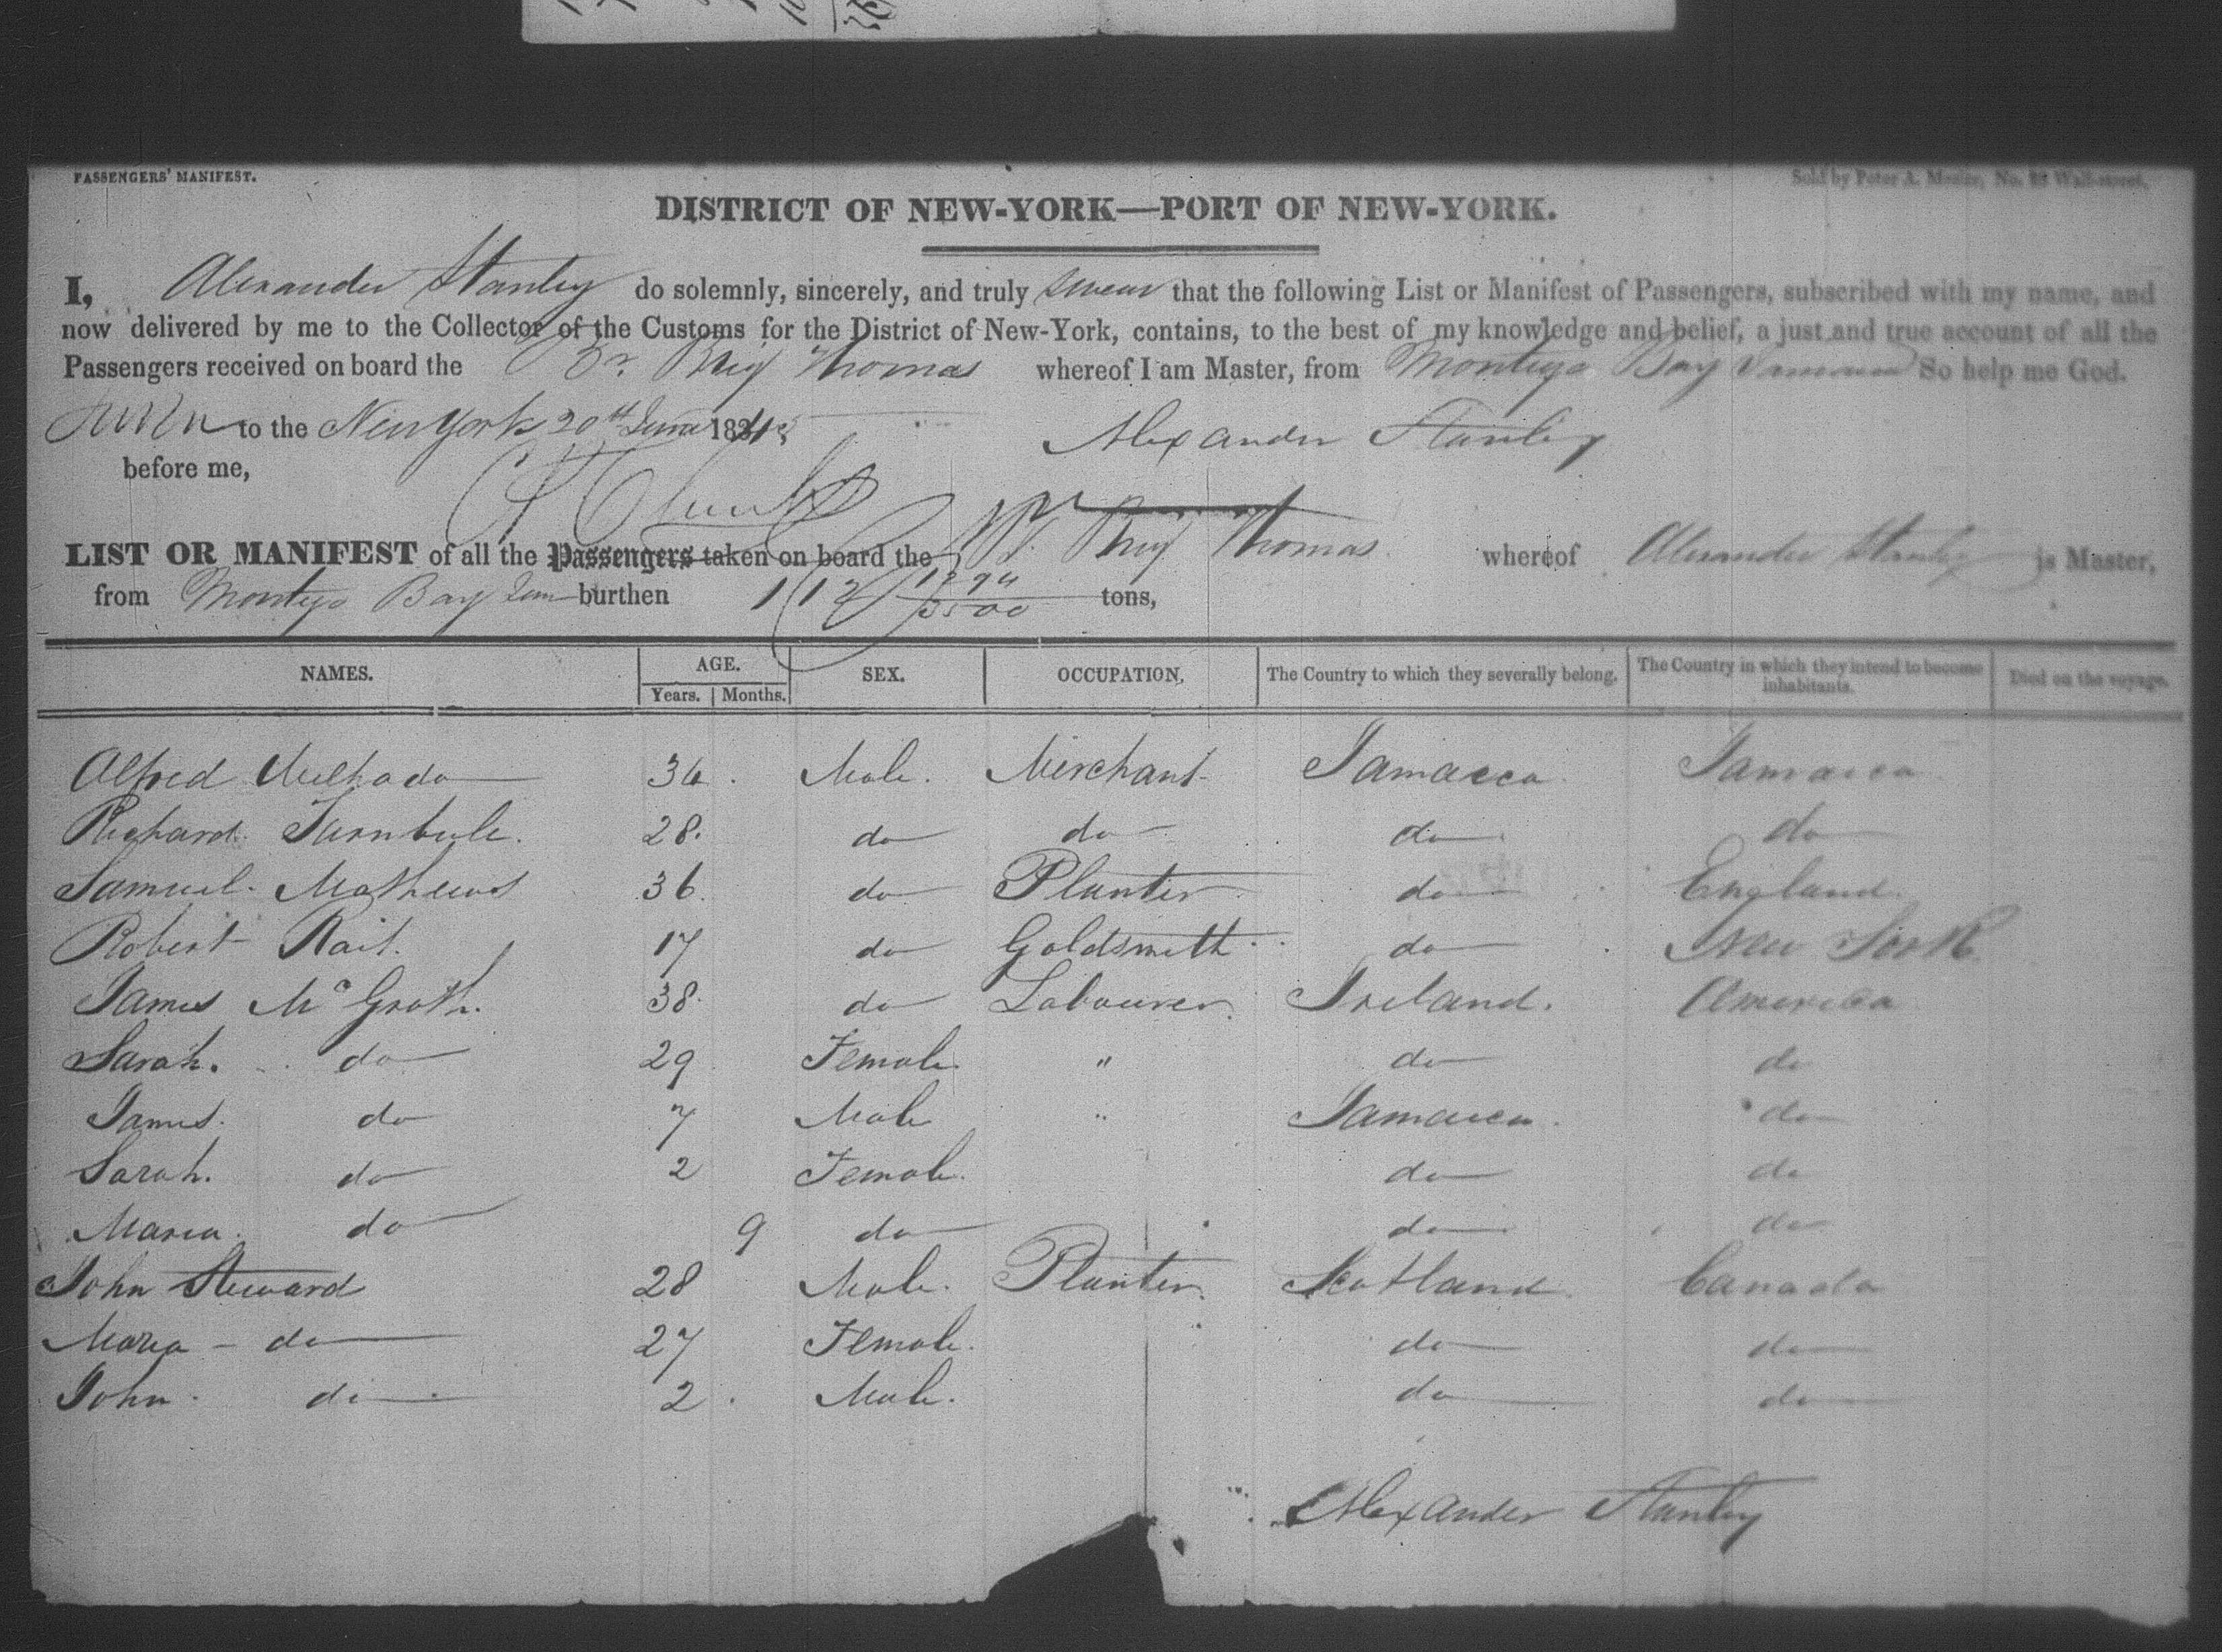 PASSENGERS' MANIFEST.
Sold by Peter A. Mesier, No. Wall-street.
DISTRICT OF NEW-YORK—PORT OF NEW-YORK.
I, Alexander Stanley do solemnly, sincerely, and truly swear that the following List or Manifest of Passengers, subscribed with my name, and
now delivered by me to the Collector of the Customs for the District of New-York, contains, to the best of my knowledge and belief, a just and true account of all the
Passengers received on board the Br. Brig Thomas whereof I am Master, from Montego Bay Jamaica So help me God.
Sworn to the New York 20th June 18
Alexander Stanley
before me,
LIST OR MANIFEST of all the Passengers taken on board the Br. Brig Thomas whereof Alexander Stanley is Master,
from Montego Bay Jam burthen 112 1294/3500 tons,
NAMES. AGE. SEX. OCCUPATION. The Country to which they severally belong. The Country in which they intend to become inhabitants. Died on the voyage.
Years. Months.
Alfred Melhado 36. Male. Merchant Jamaica Jamaica
Richard Turnbule. 28. do do do do
Samuel Mathews 36. do Planter do England
Robert Nait. 17 do Goldsmith do New York
James Mc Grath. 38. do Labourer. Ireland. America
Sarah. do 29 Female. " do do
James. do 7 Male " Jamaica. do
Sarah. do 2 Female. do do
Maria. do 9 do do do
John Steward 28 Male. Planter. Scotland Canada
Maria - do 27 Female. do do
John. do 2. Male. do do
Alexander Stanley